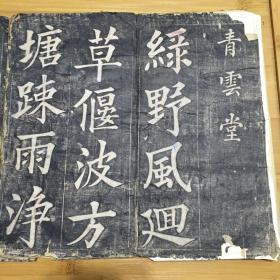 青雲堂
綠野風迴
草偃波方
塘踈雨净